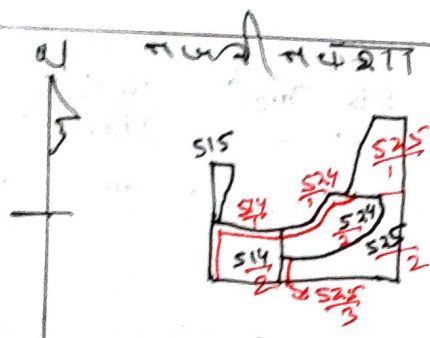 नजरी नक्शा
515
525/1
524/1
514/1
524/2
525/2
514/2
525/3